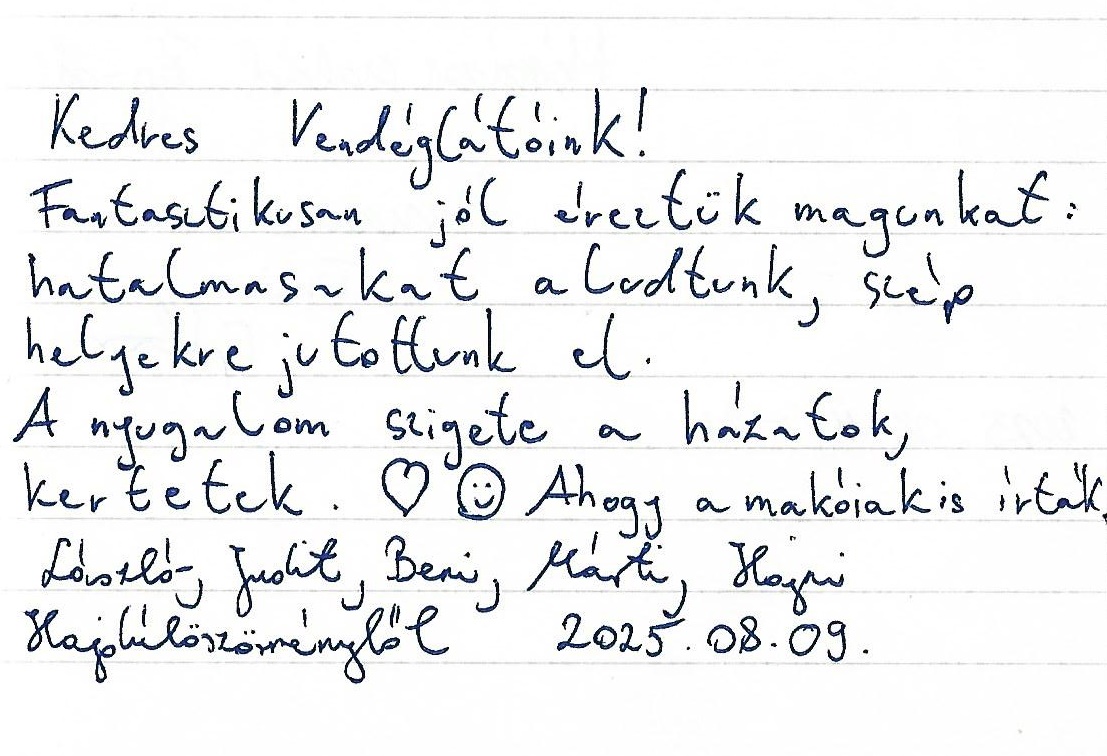 Kedves Vendéglátóink!
Fantasztikusan jól éreztük magunkat:
hatalmasakat aludtunk, szép
helyekre jutottunk el.
A nyugalom szigete a házatok,
kertetek. ♡ ☺ Ahogy a makóiak is írták.
László, Judit, Beni, Márti, Hajni
Hajdúböszörményből 2025.08.09.